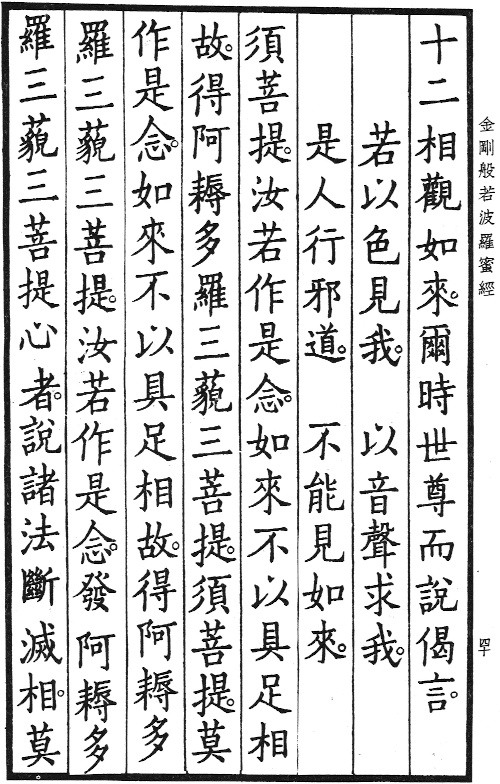 金剛般若波羅蜜經
四十
十二相觀如來。爾時世尊而說偈言。
若以色見我。　以音聲求我。
是人行邪道。　不能見如來。
須菩提。汝若作是念。如來不以具足相
故。得阿耨多羅三藐三菩提。須菩提。莫
作是念。如來不以具足相故。得阿耨多
羅三藐三菩提。汝若作是念。發阿耨多
羅三藐三菩提心者。說諸法斷滅相。莫